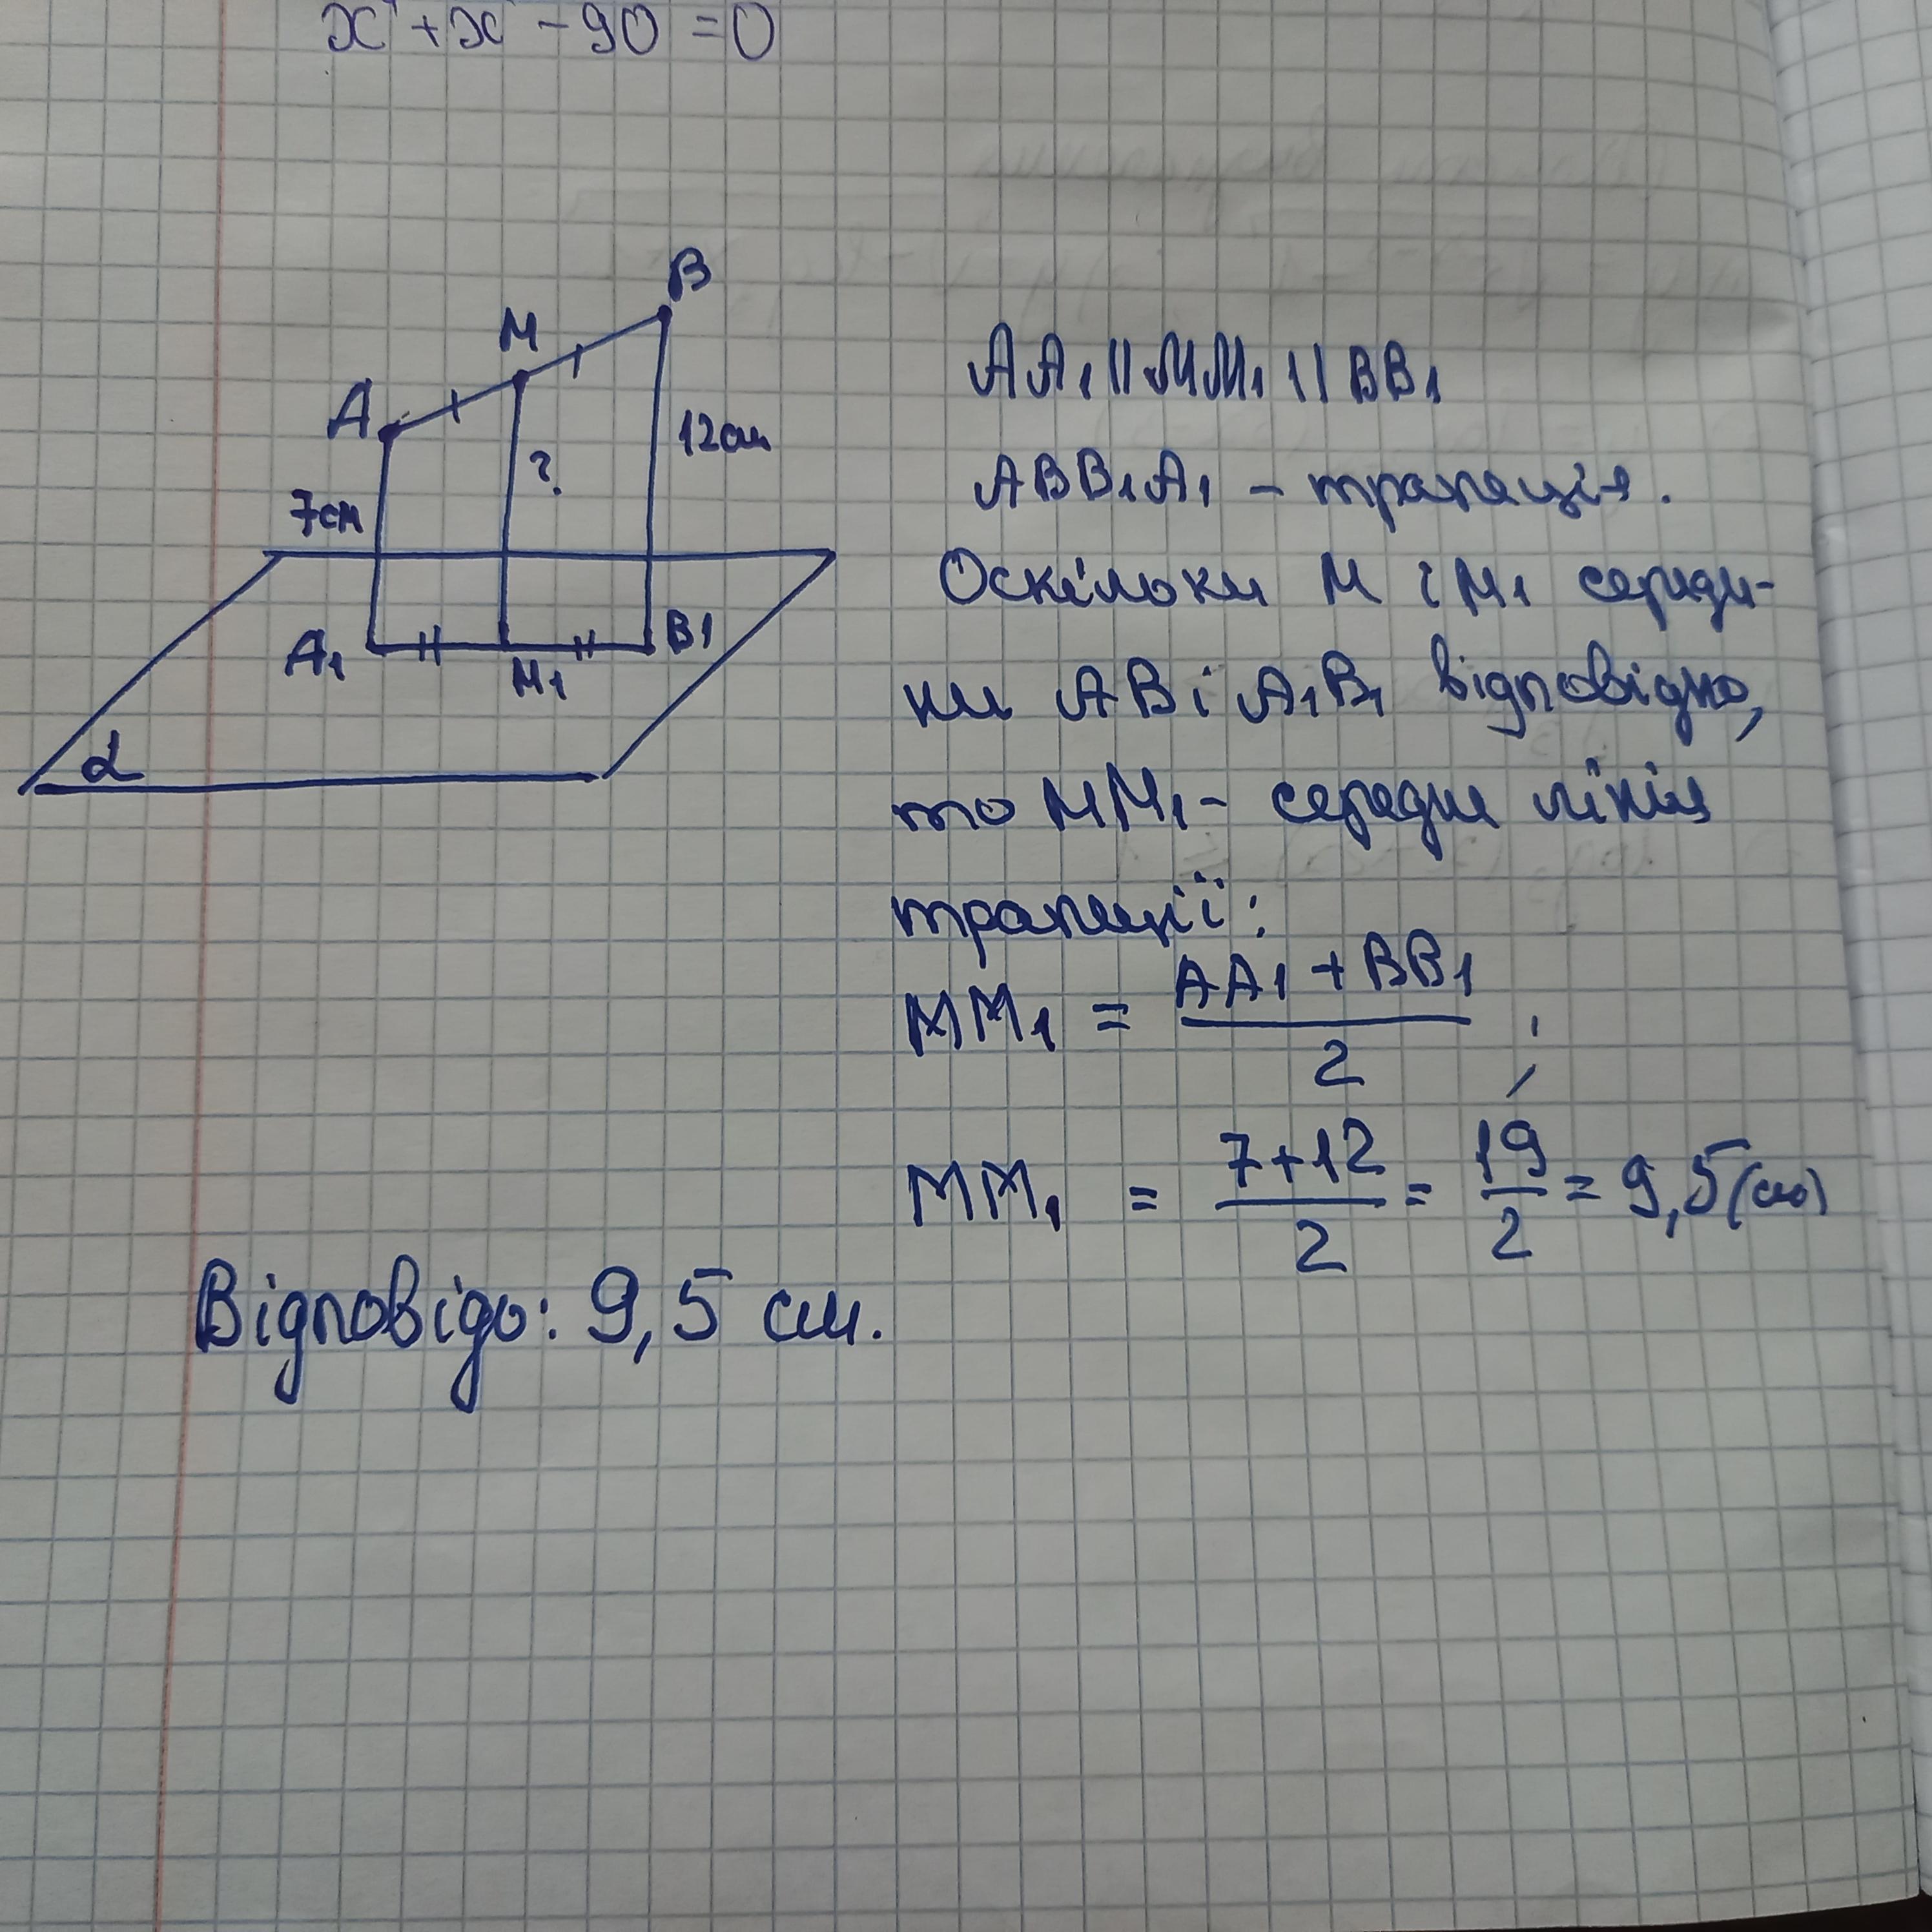 x² + x - 90 = 0
B
M
A
12см
?
7см
A₁
M₁
B₁
α
AA₁ || MM₁ || BB₁
ABB₁A₁ – трапеція.
Оскільки M і M₁ середи-
ни AB і A₁B₁ відповідно,
то MM₁ – середня лінія
трапеції:
MM₁ = (AA₁ + BB₁)/2 ;
MM₁ = (7+12)/2 = 19/2 = 9,5 (см)
Відповідь: 9,5 см.